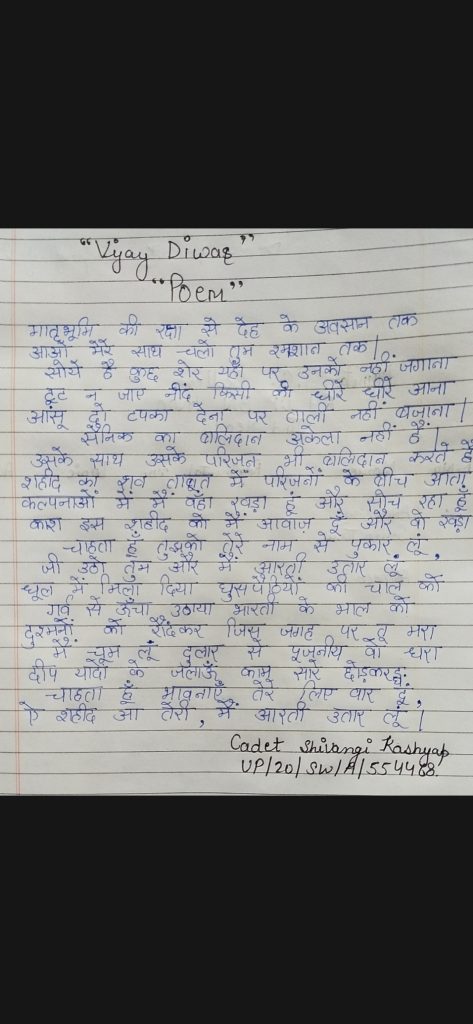 "Vijay Diwas"
"Poem"
मातृभूमि की रक्षा से देह के अवसान तक
आओ मेरे साथ चलो तुम श्मशान तक|
सोये है कुछ शेर यहाँ पर उनको नहीं जगाना
टूट न जाए नींद किसी की धीरे धीरे आना
आंसू दो टपका देना पर ताली नहीं बजाना|
सैनिक का बलिदान अकेला नहीं है|
उसके साथ उसके परिजन भी बलिदान करते है
शहीद का शव ताबूत में परिजनों के बीच आता
कल्पनाओं में मैं वहाँ खड़ा हूं और सोच रहा हूँ
काश इस शहीद को मैं आवाज़ दूँ और वो खड़ा
चाहता हूँ तुझको तेरे नाम से पुकार लूं,
जी उठो तुम और मैं आरती उतार लूं
धूल में मिला दिया घुसपैठियों की चाल को
गर्व से ऊँचा उठाया भारती के भाल को
दुश्मनों को रौंदकर जिस जगह पर तू मरा
मैं चूम लूं दुलार से पूजनीय वो धरा
दीप यादों के जलाऊँ काम सारे छोड़कर
चाहता हूँ भावनाएँ तेरे लिए वार दूं,
ऐ शहीद आ तेरी, मैं आरती उतार लूं|
Cadet Shivangi Kashyap
UP/20/SW/A/554468.